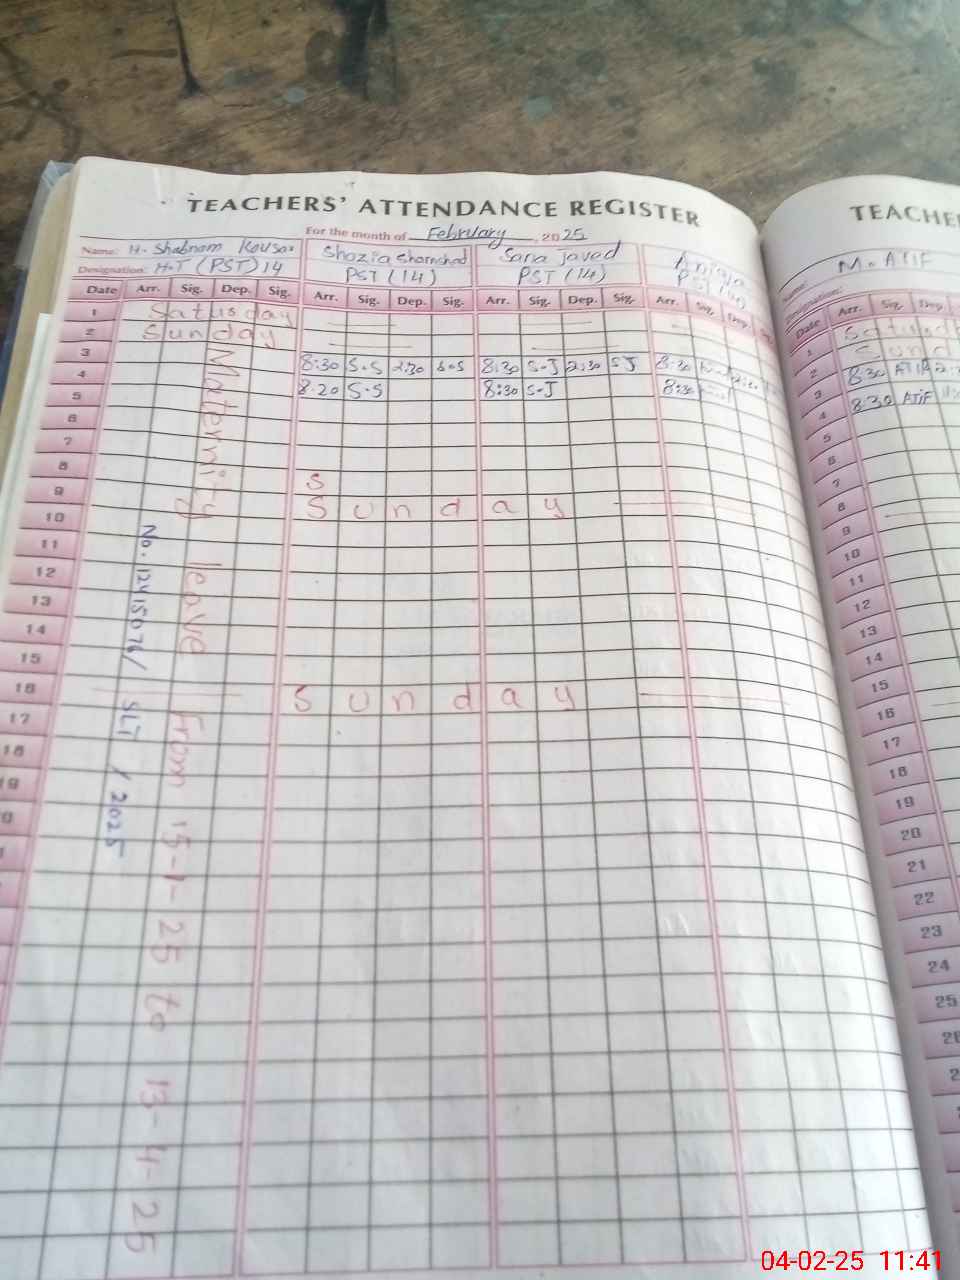 TEACHERS' ATTENDANCE REGISTER
For the month of February, 2025
Name: H. Shabnam Kousar
Designation: H.T (PST) 14
Shazia Shamshad
PST (14)
Sana javed
PST (14)
Date Arr. Sig. Dep. Sig. Arr. Sig. Dep. Sig. Arr. Sig. Dep. Sig. Arr. Sig. Dep.
1 Saturday
2 Sunday
3 8:30 S-S 2:30 S-S 8:30 S-J 2:30 SJ 8:30
4 8:20 S-S 8:30 S-J 8:30
5
6
7
8 S
9 Sunday
10
11
12
13
14
15
16 Sunday
17
18
19
Maternity leave From 15-1-25 to 13-4-25
No. 12415076/ SLT / 2025
TEACHE
Name: M. ATIF
Designation:
Date Arr. Sig. Dep.
1 Saturd
2 Sund
3 8:30 ATIF
4 8:30 ATIF
5
6
7
8
9
10
11
12
13
14
15
16
17
18
19
20
21
22
23
24
25
04-02-25 11:41